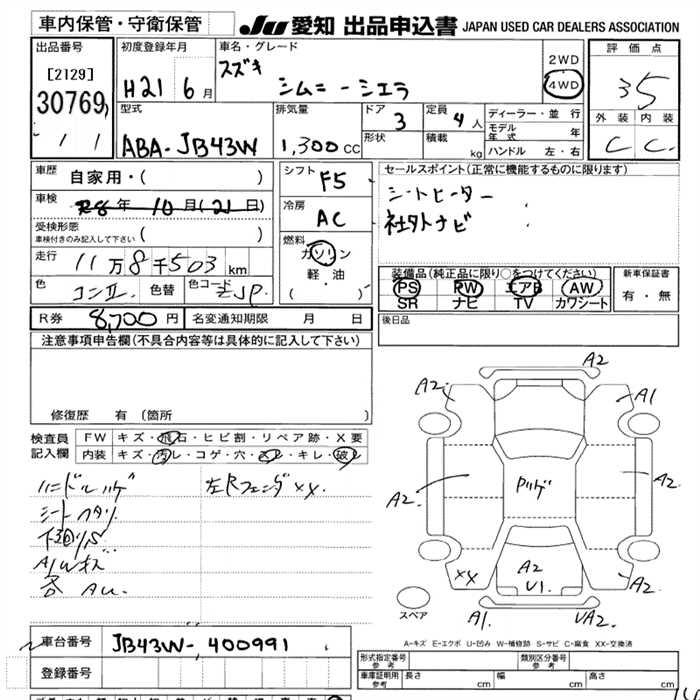 車内保管・守衛保管
JU 愛知 出品申込書 JAPAN USED CAR DEALERS ASSOCIATION
出品番号
[2129]
30769
初度登録年月
H21 6月
車名・グレード
スズキ
ジムニーシエラ
2WD
4WD
評価点
35
外装 内装
C C
型式
ABA-JB43W
排気量
1,300cc
ドア
3
形状
定員
4人
積載
kg
ディーラー・並行
モデル年式 年
ハンドル 左・右
車歴
自家用・( )
車検
R8年 10月(21日)
受検形態
車検付きのみ記入して下さい ( )
走行
11万8千503km
色
色替
色コード
ZJP
シフト
F5
冷房
AC
燃料
ガソリン
軽・油
( )
セールスポイント(正常に機能するものに限ります)
シートヒーター
社外ナビ
装備品(純正品に限り○をつけてください)
PS PW エアB AW
SR ナビ TV カワシート
新車保証書
有・無
R券 8,700円 名変通知期限 月 日
後日品
注意事項申告欄(不具合内容等は具体的に記入して下さい)
修復歴 有(箇所
検査員記入欄
FW キズ・飛石・ヒビ割・リペア跡・X要
内装 キズ・汚レ・コゲ・穴・スレ・キレ・破レ
ハンドルハゲ
シートヘタリ
下回りS
AWキズ
各AU
左Rフェンダ XX
A2
A2
A1
A2
A2
A2
U1
XX
A2
A1
UA2
スペア
A-キズ E-エクボ U-凹み W-補修跡 S-サビ C-腐食 XX-交換済
車台番号
JB43W-400991
登録番号
形式指定番号
参考
類別区分番号
参考
車庫証明用
参考
長さ cm 幅 cm 高さ cm